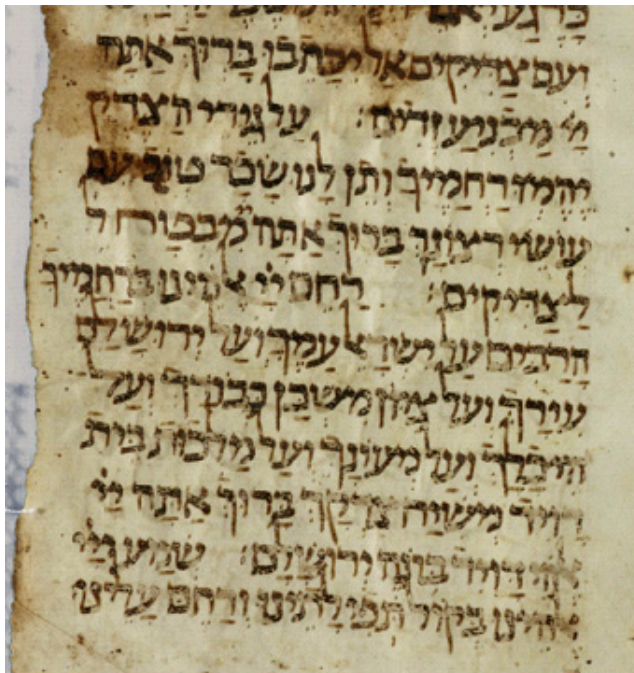 כרגע
ועם צדיקים אל יכתבו ברוך אתה
יי מכניע זדים: על גירי הצדק
יהמו רחמיך ותן לנו שכר טוב עם
עושי רצונך ברוך אתה יי מבטח ל
לצדיקים: רחם יי אלהינו ברחמיך
הרבים על ישראל עמך ועל ירושלם
עירך ועל ציון משכן כבודך ועל
היכלך ועל מעונך ועל מלכות בית
דויד משיח צדקך ברוך אתה יי
אלהי דויד בונה ירושלם: שמע יי
אלהינו בקול תפילתינו ורחם עלינו